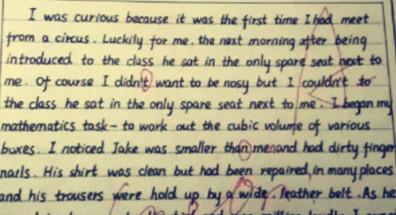 I was curious because it was the first time I had meet
from a circus. Luckily for me. the next morning after being
introduced to the class he sat in the only spare seat next to
me. Of course I didn't want to be nosy but I couldn't to
the class he sat in the only spare seat next to me. I began my
mathematics task- to work out the cubic volume of various
boxes. I noticed Jake was smaller than menand had dirty finger
narls. His shirt was clean but had been repaired, in many places
and his trousers were hold up by a wide. leather belt. As he